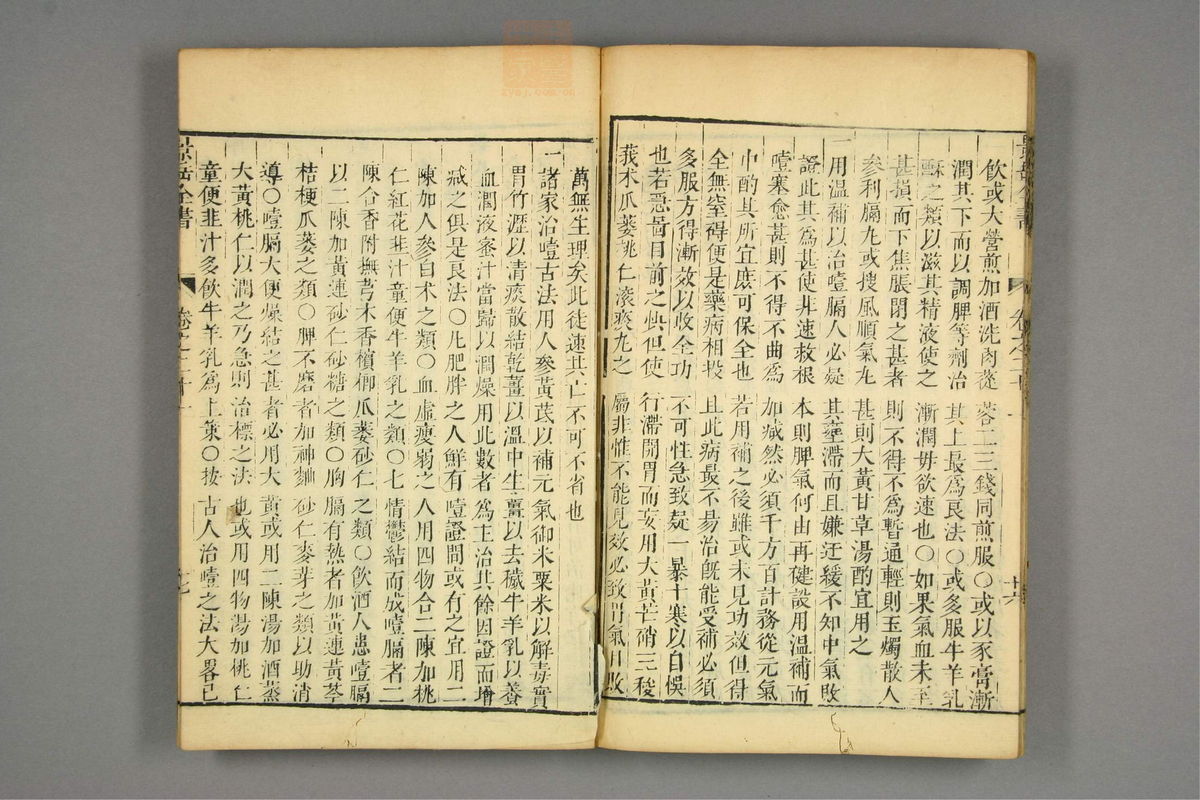 飲或大營煎加酒洗肉蓯蓉二三錢同煎服○或以家膏漸
潤其下而以調脾等劑治其上最爲良法○或多服牛羊乳
酥之類以滋其精液使之漸潤毋欲速也○如果氣血未至
甚損而下焦脹閉之甚者則不得不爲暫通輕則玉燭散人
參利膈丸或搜風順氣丸甚則大黃甘草湯酌宜用之
一用溫補以治噎膈人必疑其壅滯而且嫌迂緩不知中氣敗
證此其爲甚使非速救根本則脾氣何由再健設用溫補而
噎塞愈甚則不得不曲爲加減然必須千方百計務從元氣
中酌其所宜庶可保全也若用補之後雖或未見功效但得
全無窒礙便是藥病相投且此病最不易治旣能受補必須
多服方得漸效以收全功不可性急致疑一暴十寒以自悞
也若急啚目前之快但使行滯開胃而妄用大黃芒硝三稜
莪术瓜蔞桃仁滾痰丸之屬非惟不能見效必致胃氣日敗
萬無生理矣此徒速其亡不可不省也
一諸家治噎古法用人參黃芪以補元氣御米粟米以解毒實
胃竹瀝以清痰散結乾薑以溫中生薑以去穢牛羊乳以養
血潤液蜜汁當歸以潤燥用此數者爲主治其餘因證而增
減之俱是良法○凡肥胖之人鮮有噎證間或有之宜用二
陳加人參白术之類○血虛瘦弱之人用四物合二陳加桃
仁紅花韮汁童便牛羊乳之類○七情鬱結而成噎膈者二
陳合香附撫芎木香檳榔瓜蔞砂仁之類○飲酒人患噎膈
以二陳加黃連砂仁砂糖之類○胸膈有熱者加黃連黃芩
桔梗瓜蔞之類○脾不磨者加神麯砂仁麥芽之類以助消
導○噎膈大便燥結之甚者必用大黃或用二陳湯加酒蒸
大黃桃仁以潤之乃急則治標之法也或用四物湯加桃仁
童便韮汁多飲牛羊乳爲上策○按古人治噎之法大畧已
景岳全書
卷之二十一
zysj.com.cn